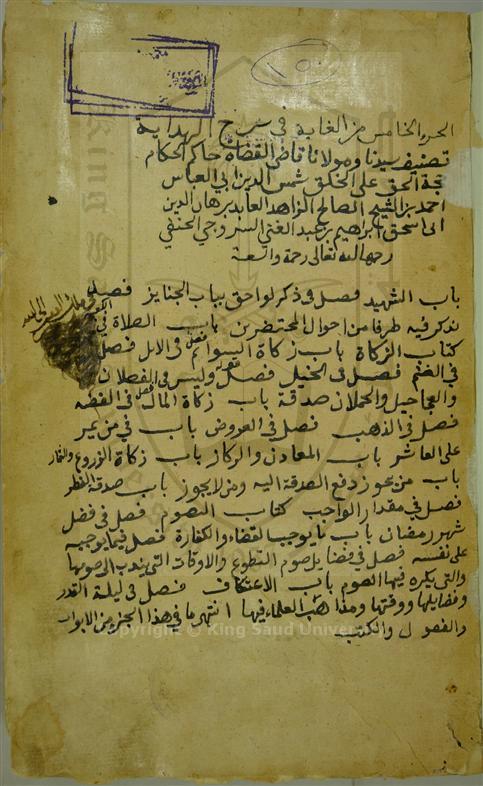 ١٥٠
الجزء الخامس من الغاية في شرح الهداية
تصنيف سيدنا ومولانا قاضى القضاة حاكم الحكام
حجة الحق على الخلق شمس الدين ابي العباس
احمد بن الشيخ الصالح الزاهد العابد برهان الدين
ابى اسحق ابراهيم بن عبد الغنى السروجي الحنفي
رحمه الله تعالى رحمة واسعة
باب الشهيد فصل في ذكر لواحق بباب الجنايز فصل
نذكر فيه طرفا من احوال المحتضرين باب الصلاة في
كتاب الزكاة باب زكاة السوايم فصل في الابل فصل
في الغنم فصل في الخيل فصل وليس في الفصلان
والعجاجيل والحملان صدقة باب زكاة المال فصل في الفضه
فصل في الذهب فصل في العروض باب في من يمر
على العاشر باب المعادن والركاز باب زكاة الزروع والثمار
باب من يجوز دفع الصدقة اليه ومن لا يجوز باب صدقة الفطر
فصل في مقدار الواجب كتاب الصوم فصل في فضل
شهر رمضان باب ما يوجب القضاء والكفارة فصل فيما يوجبه
على نفسه فصل في فضايل صوم التطوع والاوقات التى يندب الى صومها
والتى يكره فيها الصوم باب الاعتكاف فصل في ليلة القدر
وفضايلها ووقتها ومذاهب العلماء فيها انتهى ما في هذا الجزء من الابواب
والفصول والكتب
Copyright © King Saud University